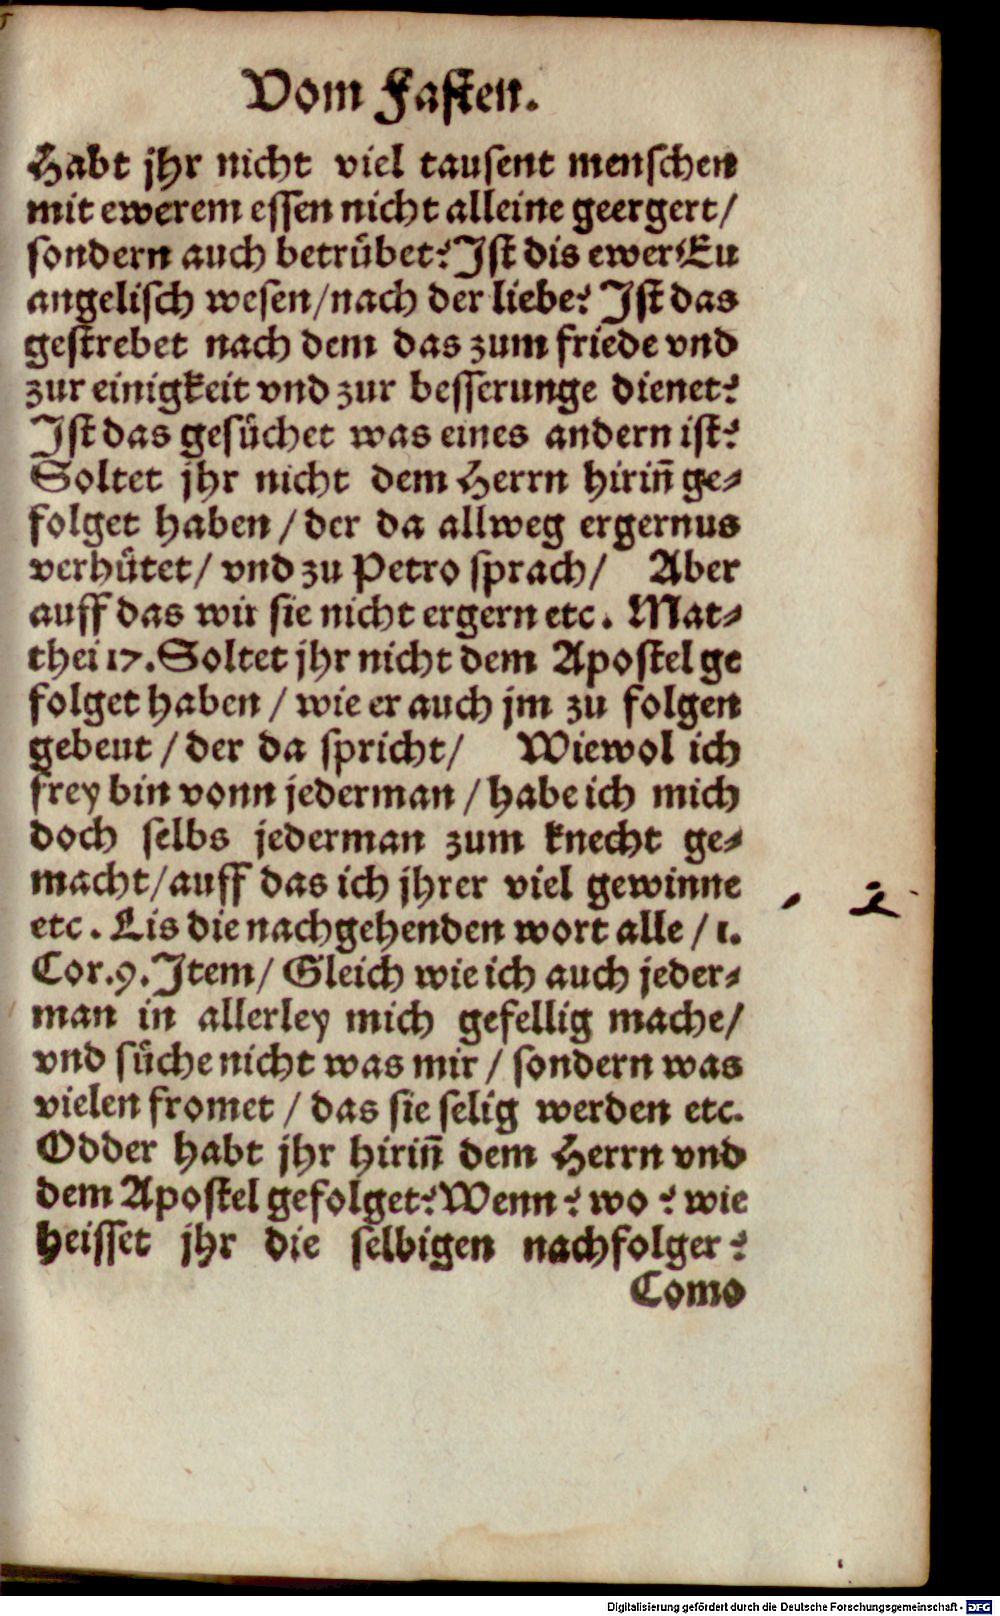 Vom Fasten.
Habt jhr nicht viel tausent menschen
mit ewerem essen nicht alleine geergert/
sondern auch betrübet? Ist dis ewer Eu
angelisch wesen/nach der liebe? Ist das
gestrebet nach dem das zum friede vnd
zur einigkeit vnd zur besserunge dienet?
Ist das gesüchet was eines andern ist?
Soltet jhr nicht dem Herrn hirin̄ ge⸗
folget haben / der da allweg ergernus
verhütet/ vnd zu Petro sprach/ Aber
auff das wir sie nicht ergern etc. Mat⸗
thei 17. Soltet jhr nicht dem Apostel ge
folget haben / wie er auch jm zu folgen
gebeut / der da spricht/ Wiewol ich
frey bin vonn jederman / habe ich mich
doch selbs jederman zum knecht ge⸗
macht/auff das ich jhrer viel gewinne
etc. Lis die nachgehenden wort alle / 1.
Cor.9. Item/ Gleich wie ich auch jeder⸗
man in allerley mich gefellig mache/
vnd süche nicht was mir / sondern was
vielen fromet / das sie selig werden etc.
Odder habt jhr hirin̄ dem Herrn vnd
dem Apostel gefolget? Wenn? wo? wie
heisset jhr die selbigen nachfolger?
Como
Digitalisierung gefördert durch die Deutsche Forschungsgemeinschaft - DFG